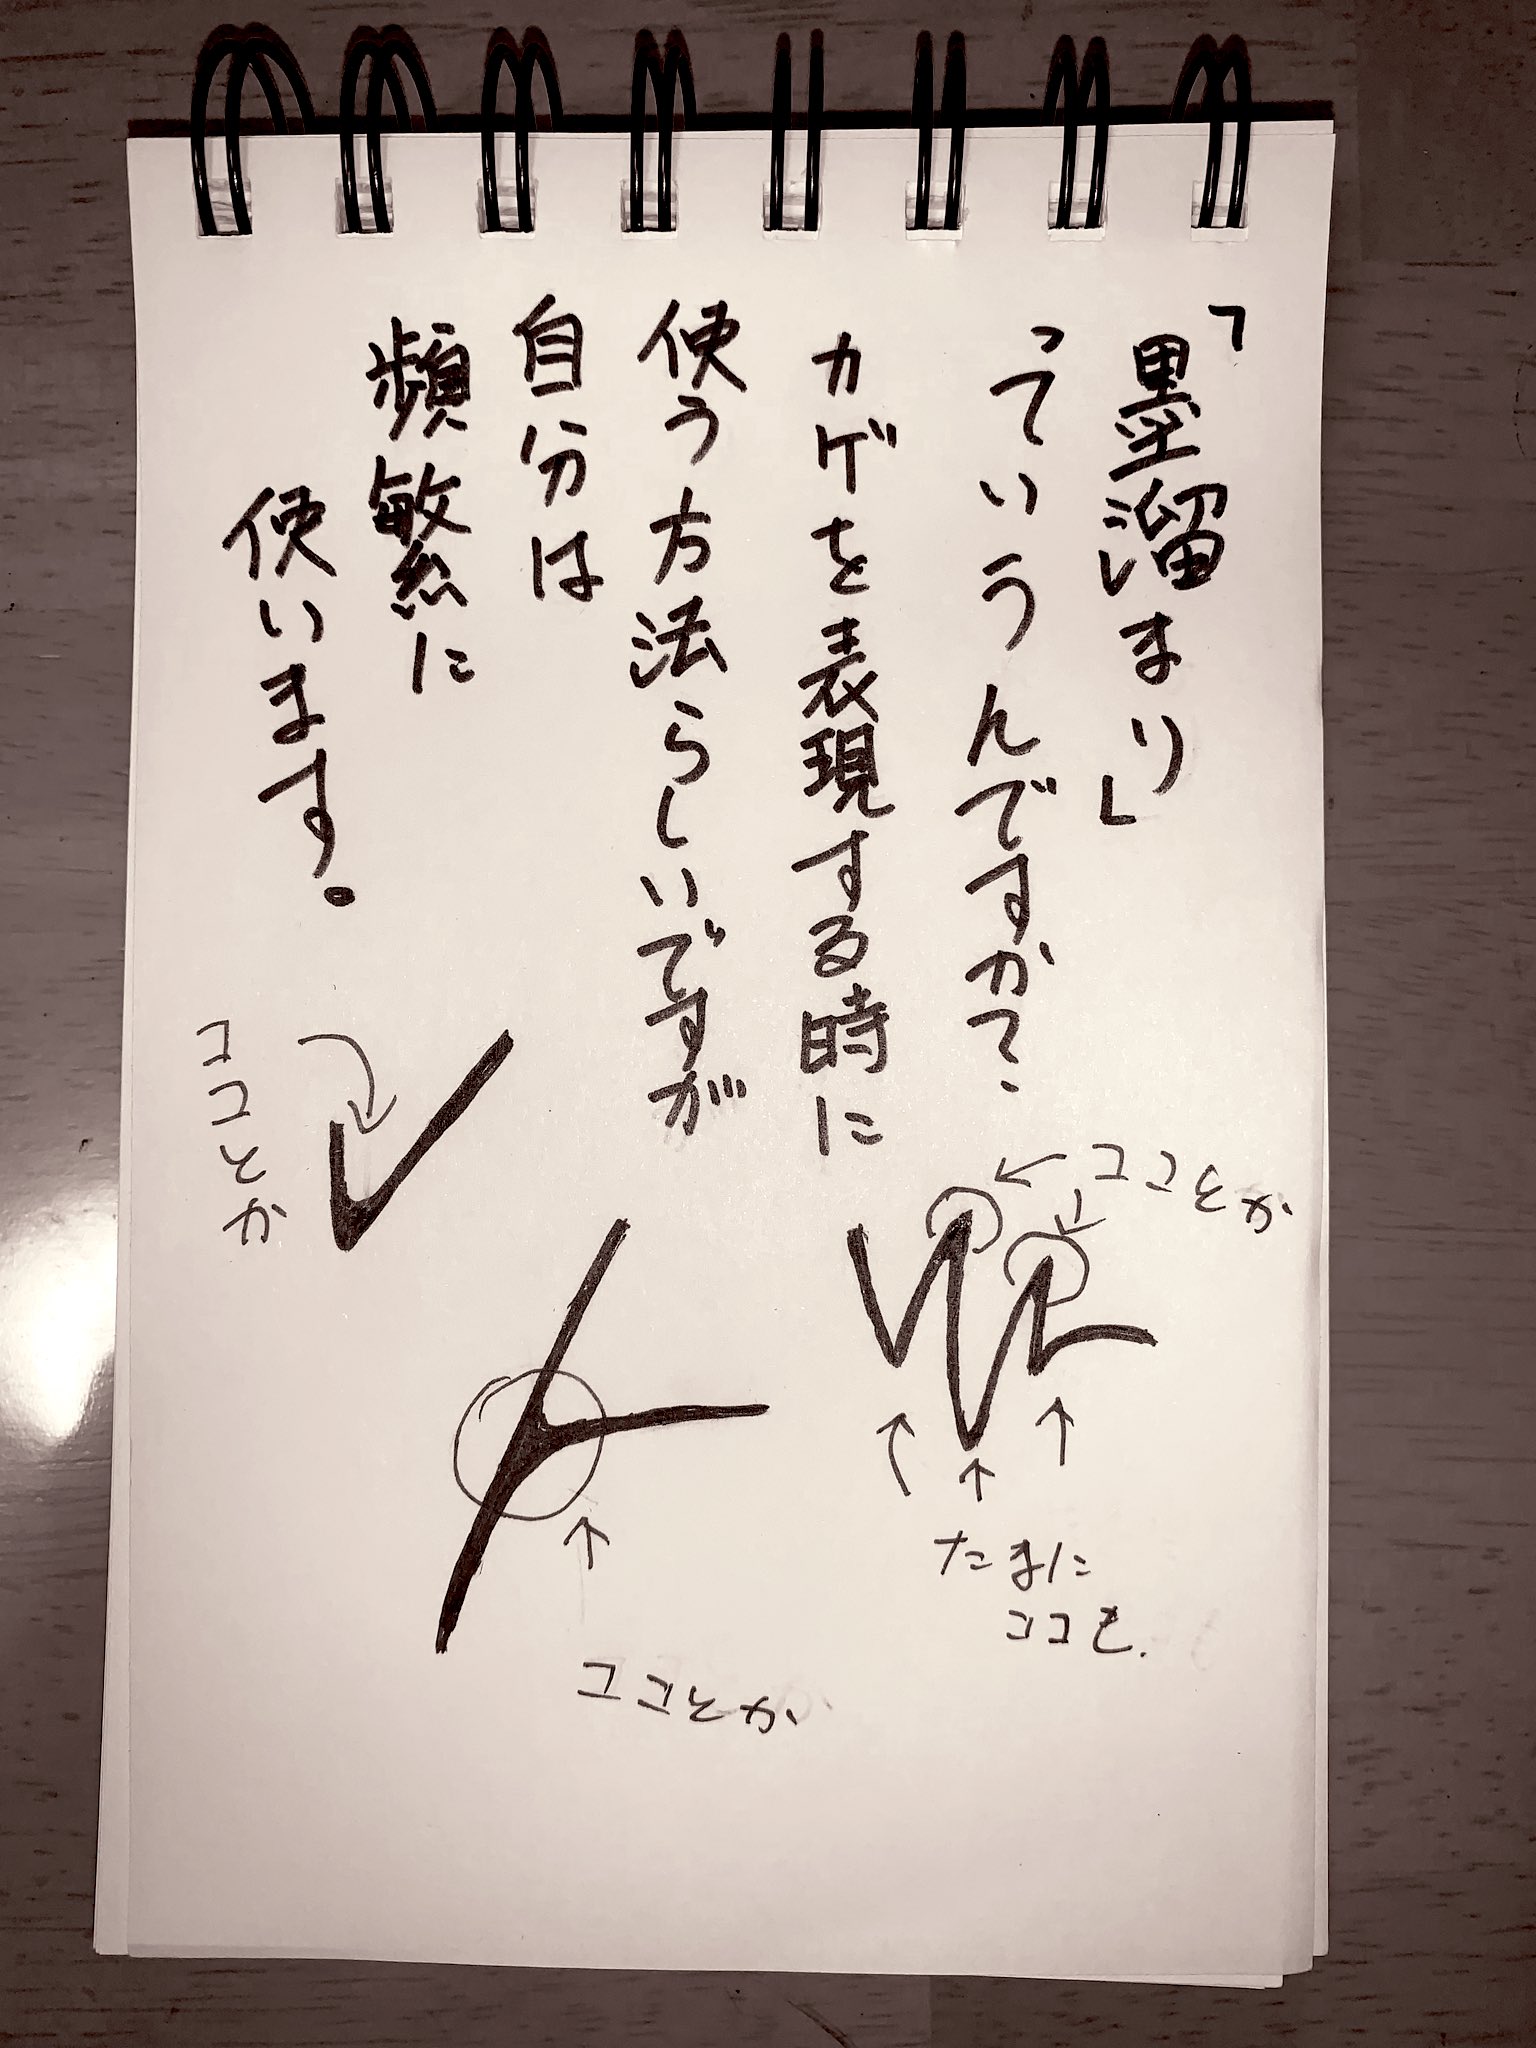 「墨溜まり」
っていうんですか？
カゲを表現する時に
使う方法らしいですが
自分は
頻繁に
使います。
ココとか
たまに
ココも.
ココとか
ココとか